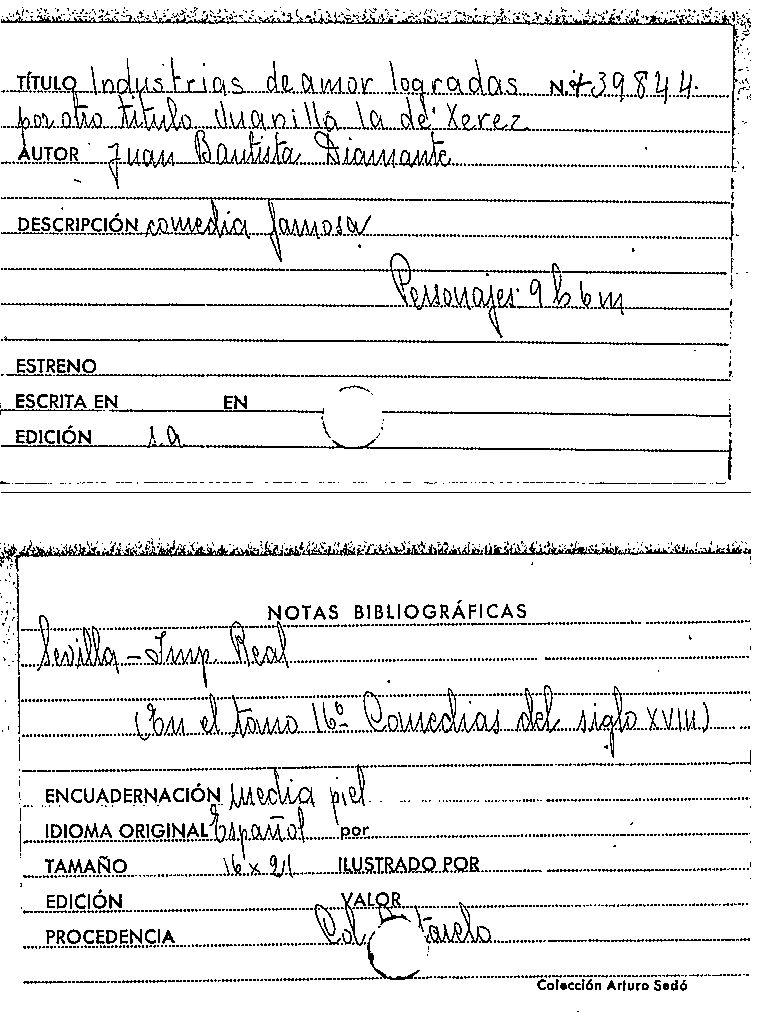 TÍTULO Industrias de amor logradas N.º 39844.
por otro título Juanilla la de Xerez
AUTOR Juan Bautista Diamante
DESCRIPCIÓN comedia famosa
Personajes: 9 h 6 m
ESTRENO
ESCRITA EN EN
EDICIÓN s.a
NOTAS BIBLIOGRÁFICAS
Sevilla - Imp. Real
(En el tomo 16º Comedias del siglo XVIII)
ENCUADERNACIÓN media piel
IDIOMA ORIGINAL Español por
TAMAÑO 16 x 21 ILUSTRADO POR
EDICIÓN VALOR
PROCEDENCIA Col.
Colección Arturo Sedó